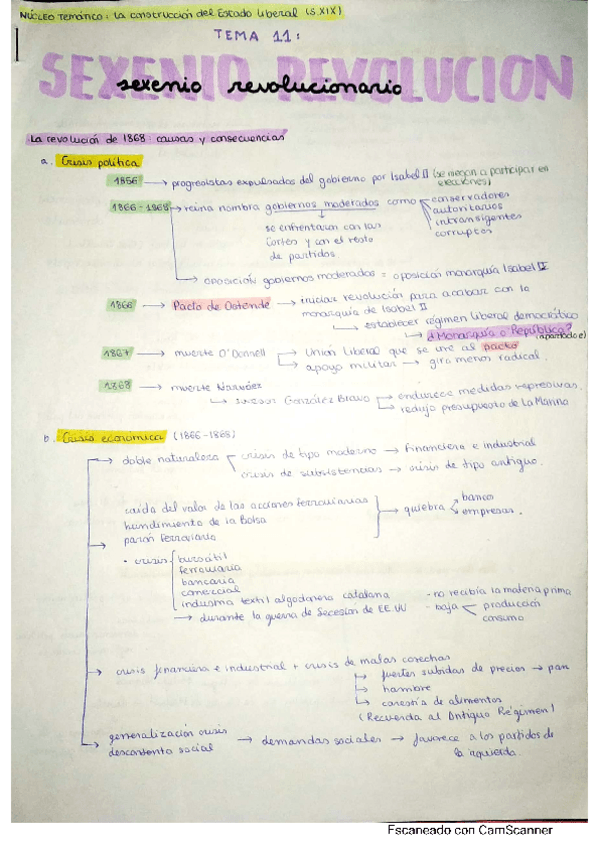 NÚCLEO TEMÁTICO: La construcción del Estado liberal (S.XIX)
TEMA 11:
SEXENIO REVOLUCION
sexenio revolucionario
La revolución de 1868: causas y consecuencias
a. Crisis política
1856 → progresistas expulsados del gobierno por Isabel II (se niegan a participar en elecciones)
1866-1968 → reina nombra gobiernos moderados como conservadores
autoritarios
intransigentes
corruptos
se enfrentaron con las
Cortes y con el resto
de partidos
→ oposición gobiernos moderados = oposición monarquía Isabel II
1866 → Pacto de Ostende → iniciar revolución para acabar con la
monarquía de Isabel II
→ establecer régimen liberal democrático
→ ¿Monarquía o República?
(apartado e)
1867 → muerte O'Donnell → Unión Liberal que se une al pacto
→ apoyo militar → giro menos radical.
1868 → muerte Narváez
→ sucesor González Bravo → endurece medidas represivas.
→ redujo presupuesto de La Marina
b. Crisis económica (1866-1868)
→ doble naturaleza crisis de tipo moderno → financiera e industrial
crisis de subsistencias → crisis de tipo antiguo.
caída del valor de las acciones ferroviarias
hundimiento de la Bolsa
parón ferroviario
→ quiebra bancos
empresas.
• crisis bursátil
ferroviaria
bancaria
comercial
industria textil algodonera catalana
→ durante la guerra de Secesión de EE.UU
- no recibía la materia prima
- baja producción
consumo
→ crisis financiera e industrial + crisis de malas cosechas
→ fuertes subidas de precios → pan
→ hambre
→ carestía de alimentos
(Recuerda al Antiguo Régimen)
→ generalización crisis
descontento social
→ demandas sociales → favorece a los partidos de
la izquierda.
Escaneado con CamScanner